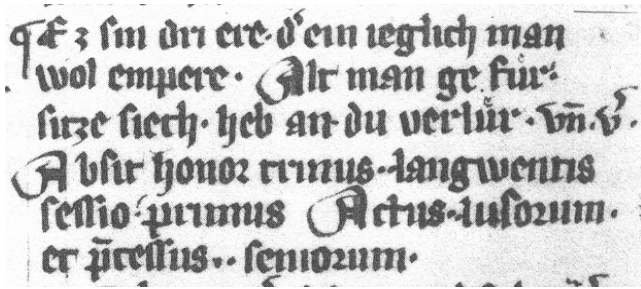 ¶ Ez sin dri ere· d͛ ein ieglich man
wol empere· Alt man ge für·
sitze siech· heb an· du verlür· vn̄· v͛
Absit honor trinus· langwentis
sessio· primus Actus· lusorum·
et p̄cessus·· seniorum·